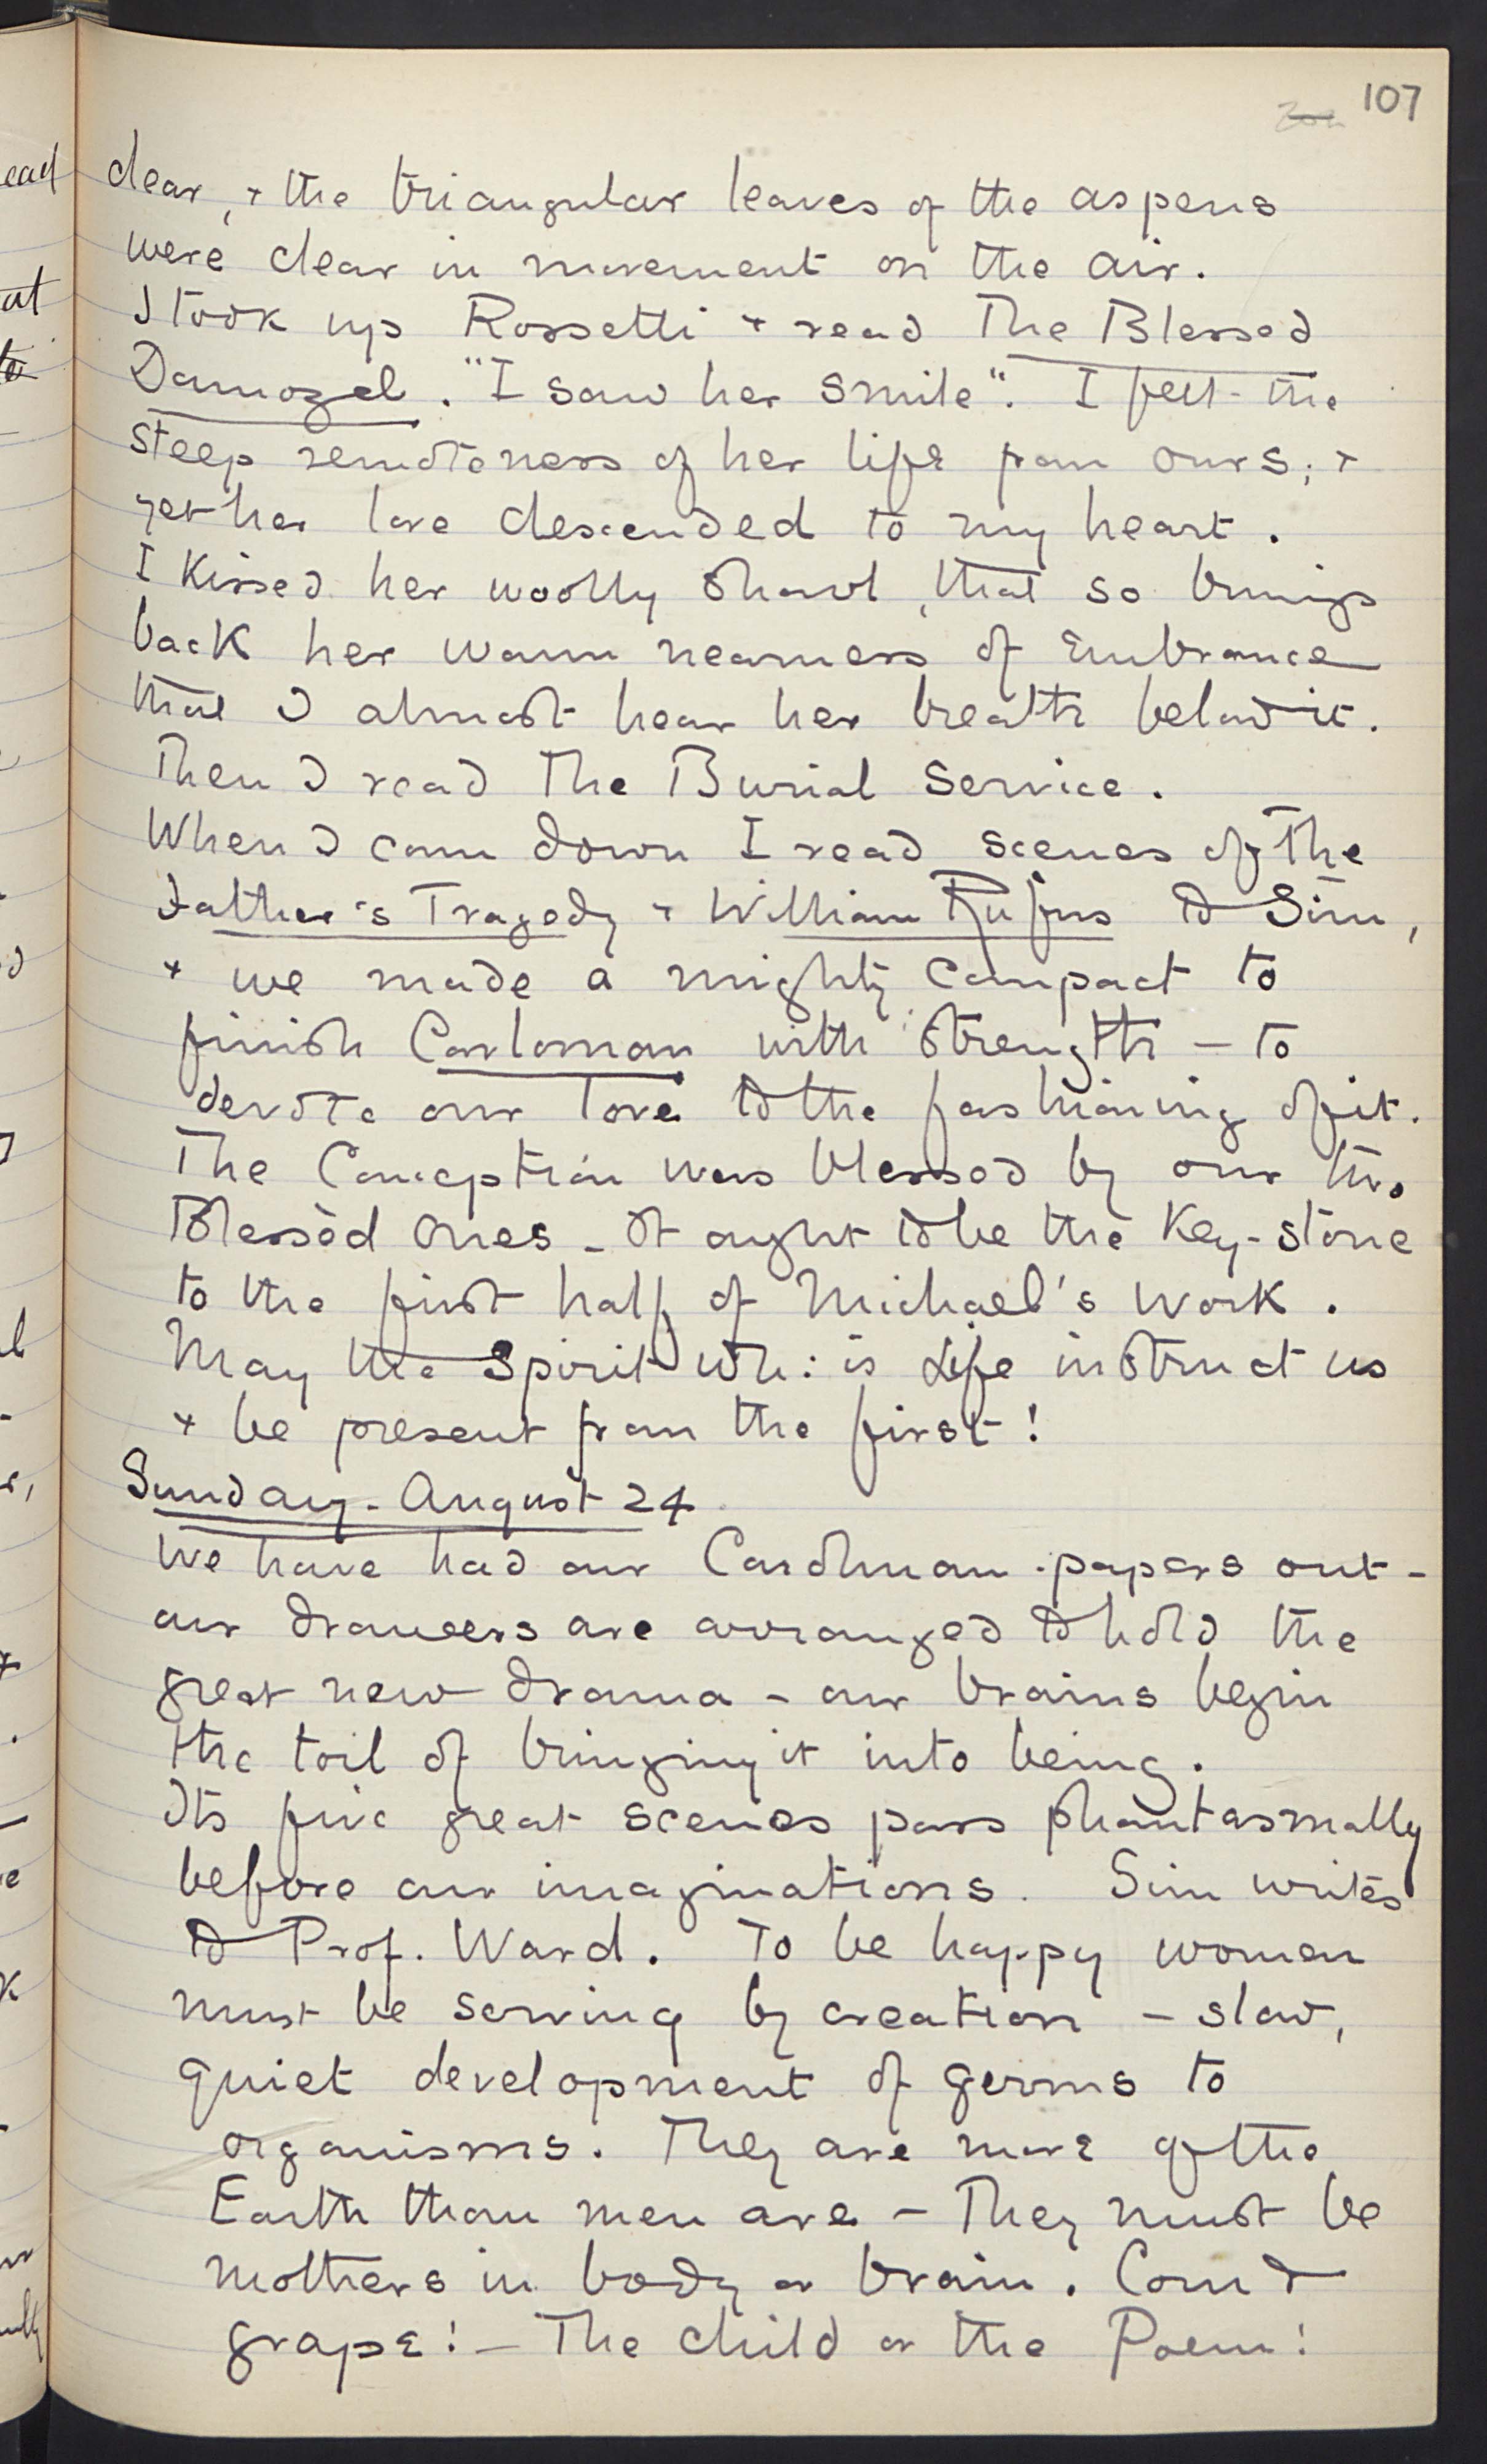 107
clear, + the triangular leaves of the aspens
were clear in movement on the air.
I took up Rossetti + read The Blessed
Damozel. "I saw her smile". I felt the
steep remoteness of her life from ours; +
yet her love descended to my heart.
I kissed her woolly shawl, that so brings
back her warm nearness of embrance
that I almost hear her breath below it.
Then I read The Burial Service.
When I came down I read scenes of The
Father's Tragedy + William Rufus to Sim,
+ we made a mighty compact to
finish Carloman with strength – to
devote our love to the fashioning of it.
The Conception was blessed by our two
Blessèd Ones – It ought to be the Key-stone
to the first half of Michael's work.
May the Spirit wh: is Life instruct us
+ be present from the first!
Sunday – August 24
We have had our Carloman papers out –
our drawers are arranged to hold the
great new drama – our brains begin
the toil of bringing it into being.
Its five great scenes pass phantasmally
before our imaginations. Sim writes
to Prof. Ward. To be happy women
must be serving by creation – slow,
quiet development of germs to
organisms. They are more of the
Earth than men are – They must be
mothers in body or brain. Corn or
grape! – The child or the Poem!